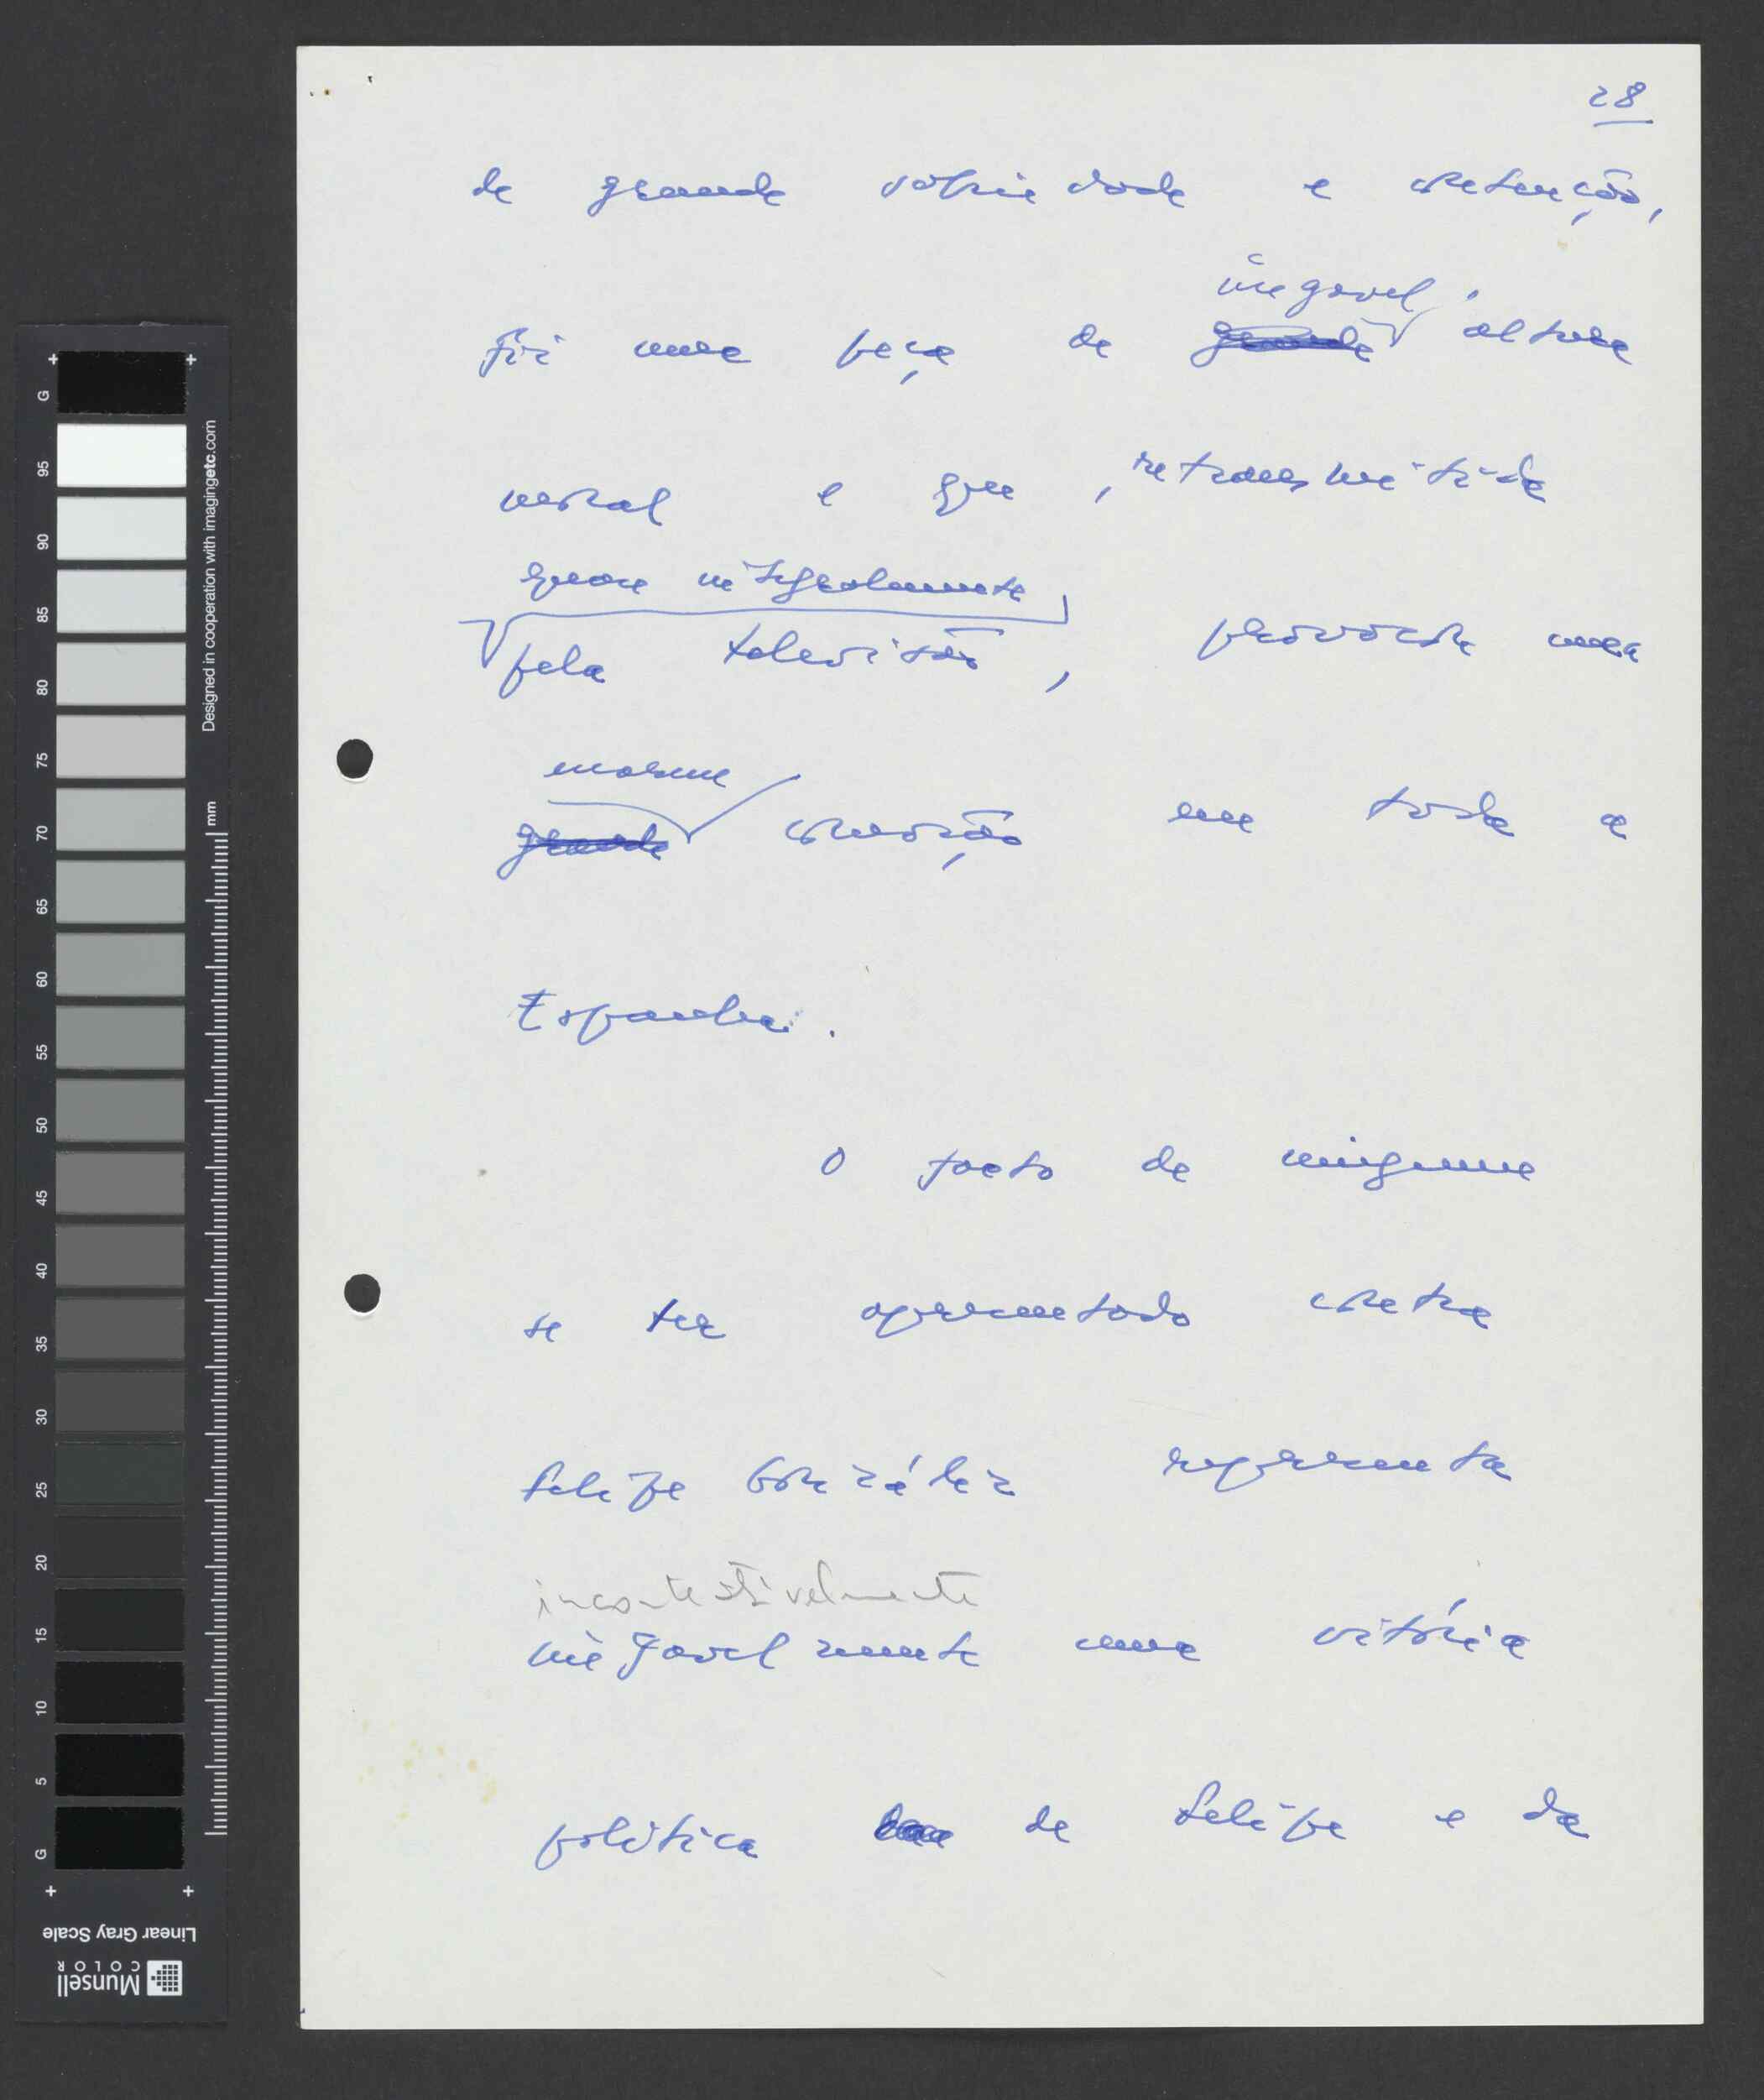 28
de grande sobriedade e contenção,
inegavel
foi uma peça de grande altura
moral e que, retransmitida
quase integralmente
pela televisão, provocou uma
enorme
grande comoção em toda a
Espanha.
O facto de ninguem
se ter apresentado contra
Felipe González representa
incontestàvelmente
inegavelmente uma vitória
política de Felipe e da
G 95 90 85 80 75 70 65 60 55 50 45 40 35 30 25 20 15 10 5 G
mm
Designed in cooperation with imagingetc.com
Linear Gray Scale
Munsell
COLOR